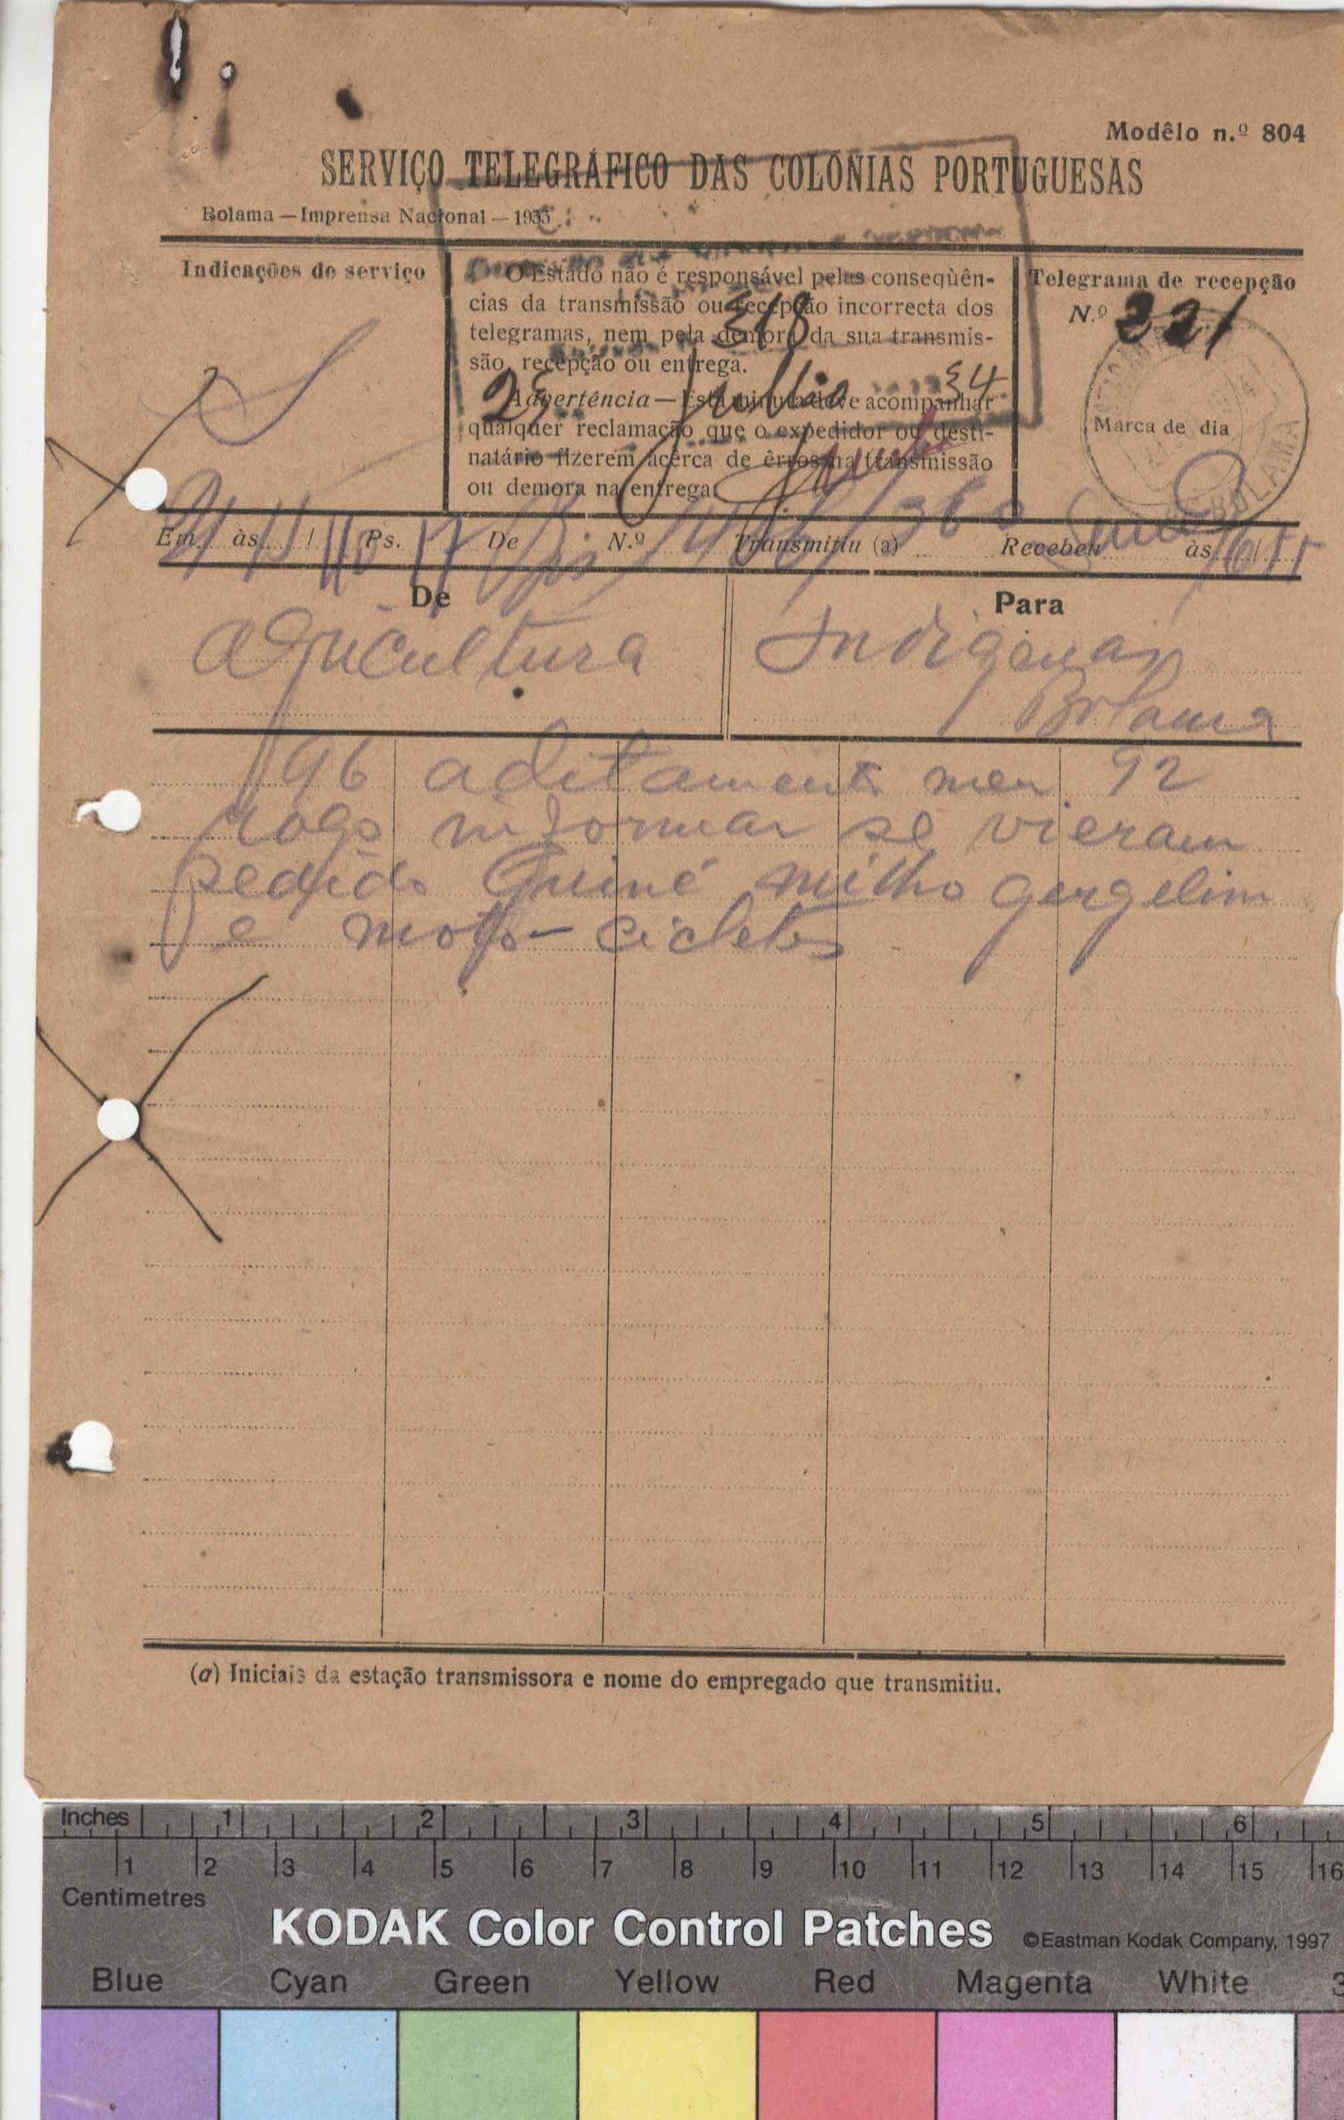 Modêlo n.º 804
SERVIÇO TELEGRÁFICO DAS COLÓNIAS PORTUGUESAS
Bolama — Imprensa Nacional — 1933
Indicações de serviço
O Estado não é responsável pelas conseqùên-
cias da transmissão ou recepção incorrecta dos
telegramas, nem pela demora da sua transmis-
são, recepção ou entrega.
Advertência — Esta minuta deve acompanhar
qualquer reclamação que o expedidor ou desti-
natário fizerem àcêrca de êrros na transmissão
ou demora na entrega.
318
25 Julho 34
Telegrama de recepção
N.º 221
Marca de dia
BOLAMA
Em às / Ps. 17 De N.º Transmitiu (a) Recebeu às /
De
Agricultura
Para
Indigenas
Bolama
96 aditamento meu 92
rogo informar se vieram
pedido Guiné milho gergelim
e moto-cicletes
(a) Iniciais da estação transmissora e nome do empregado que transmitiu.
Inches 1 2 3 4 5 6
1 2 3 4 5 6 7 8 9 10 11 12 13 14 15 16
Centimetres
KODAK Color Control Patches ©Eastman Kodak Company, 1997
Blue Cyan Green Yellow Red Magenta White 3